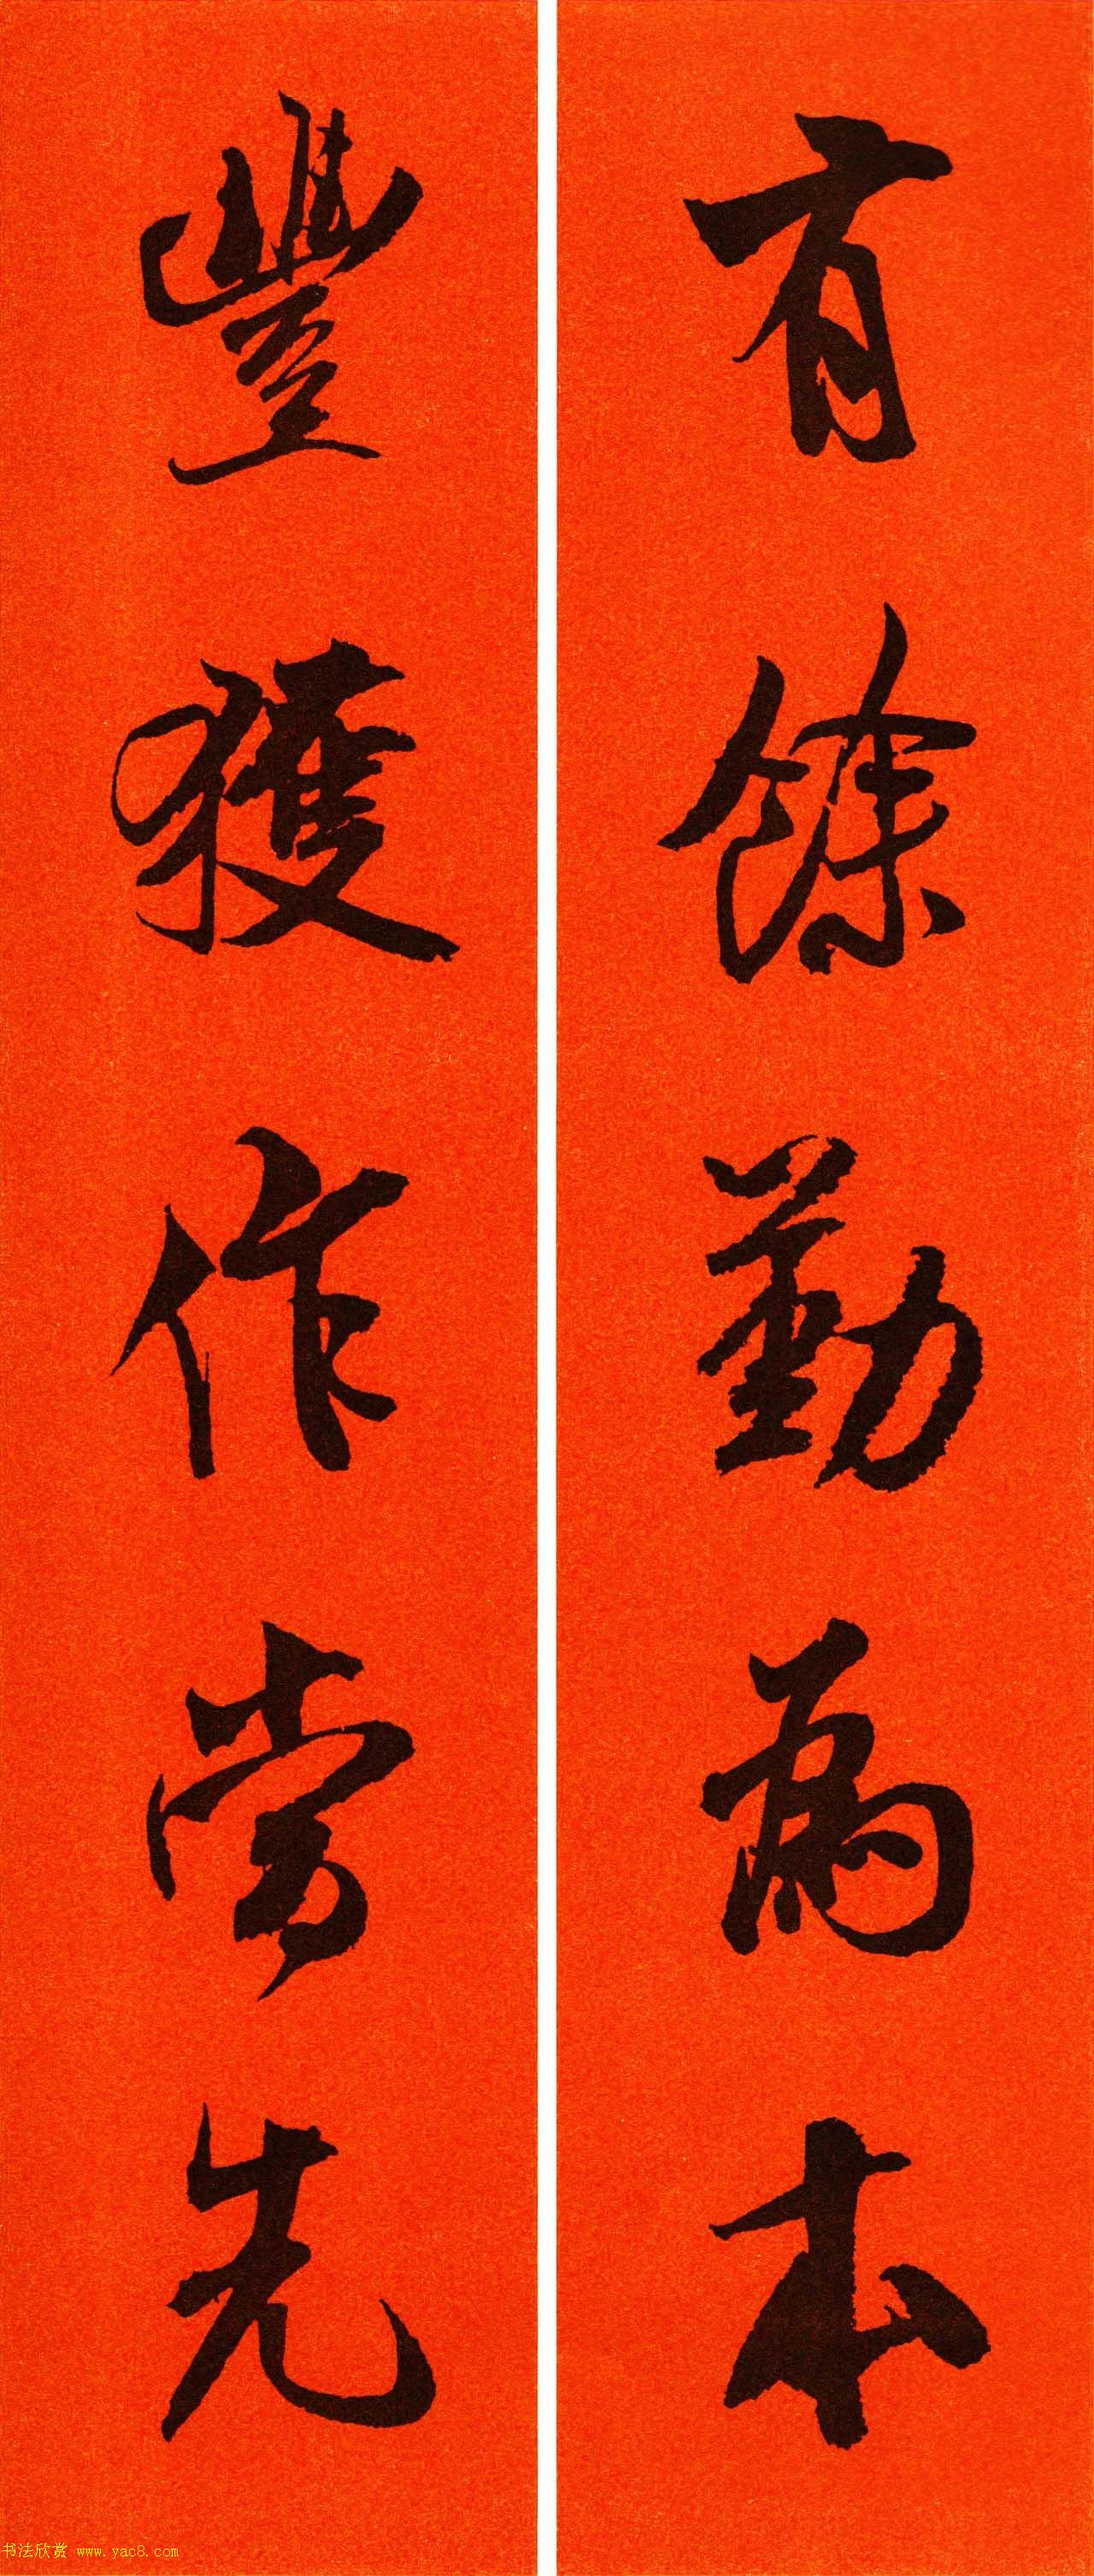 有餘勤爲本
豐獲作嘗先
书法欣赏 www.yac8.com